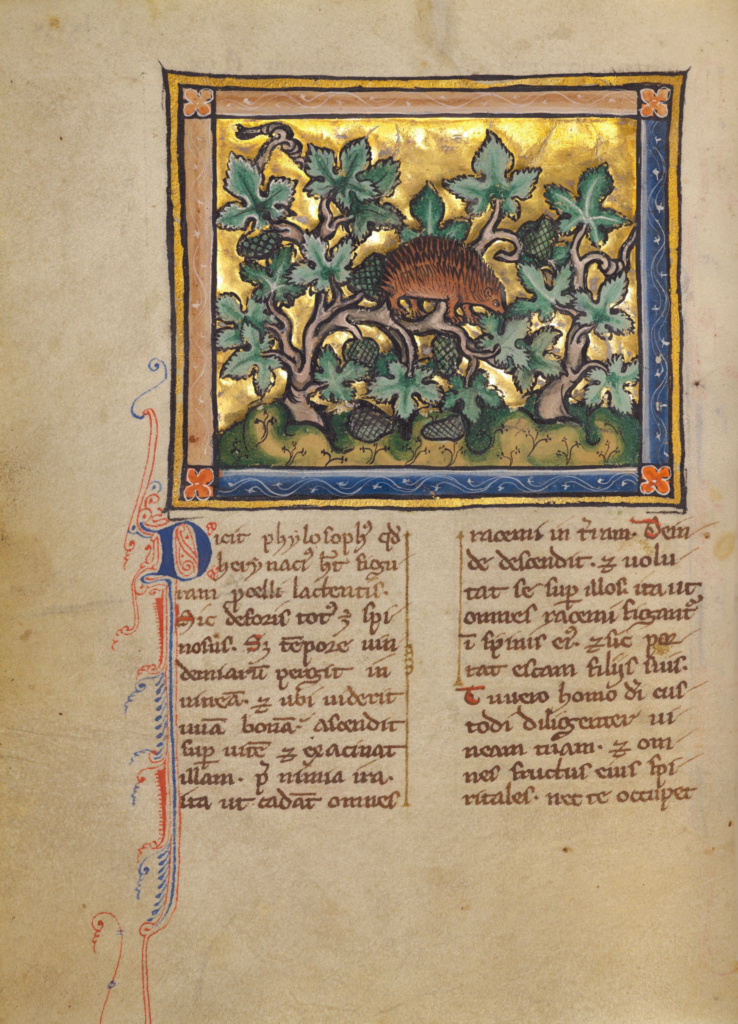 Dicit phylosophꝰ qđ
herynaciꝰ ht̄ figu
ram poelli lactentis.
Sic deforis totꝰ ē spi
nosus. Sꝫ tēpore uin
demiarū pergit in
uineā. ⁊ ubi uiderit
uuā bonā. ascendit
suꝑ uitē ⁊ exacinat
illam. nimia ira.
ita ut cadāt omnes
racemi in t̄ram. Dein
de descendit. ⁊ uolu
tat se suꝑ illos. ita ut
omnes racemi figant̃
ī spinis eiꝰ. ⁊ sic por
tat escam filijs suis.
Tu uero homo di cus
todi diligenter ui
neam tuam. ⁊ om
nes fructus eius spi
ritales. nec te occupet